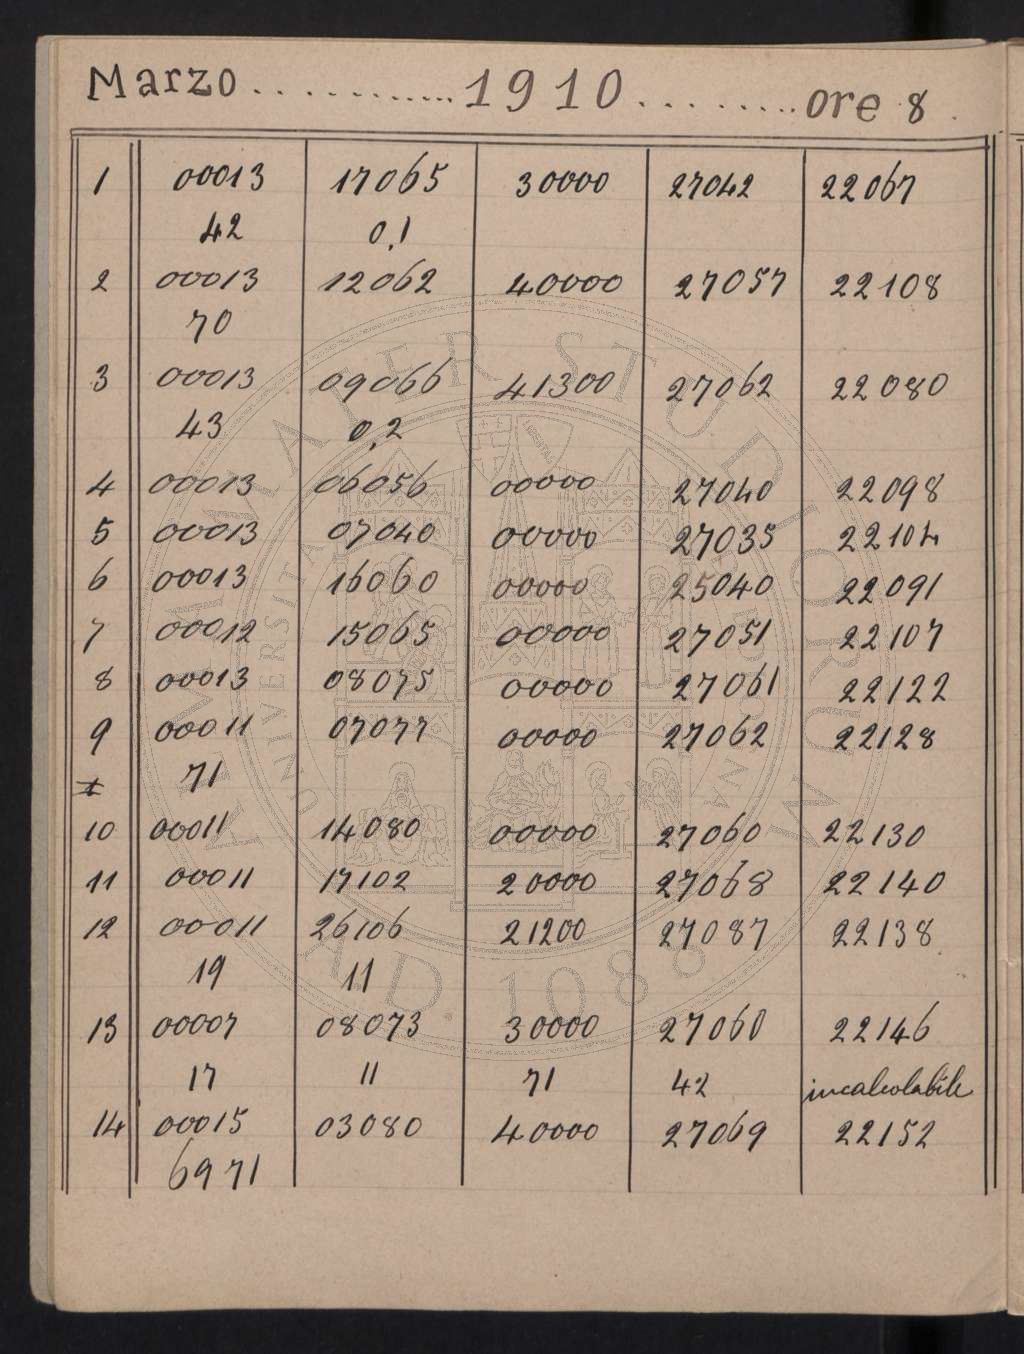 Marzo ............ 1910 ......... ore 8 .
1 00013 17065 30000 27042 22067
42 0,1
2 00013 12062 40000 27057 22108
70
3 00013 09066 41300 27062 22080
43 0,2
4 00013 06056 00000 27040 22098
5 00013 07040 00000 27035 22104
6 00013 16060 00000 25040 22091
7 00012 15065 00000 27051 22107
8 00013 08075 00000 27061 22122
9 00011 07077 00000 27062 22128
71
10 00011 14080 00000 27060 22130
11 00011 17102 20000 27068 22140
12 00011 26106 21200 27087 22138
19 11
13 00007 08073 30000 27060 22146
17 11 71 42 incalcolabile
14 00015 03080 40000 27069 22152
69 71
ALMA MATER STUDIORUM
A.D. 1088